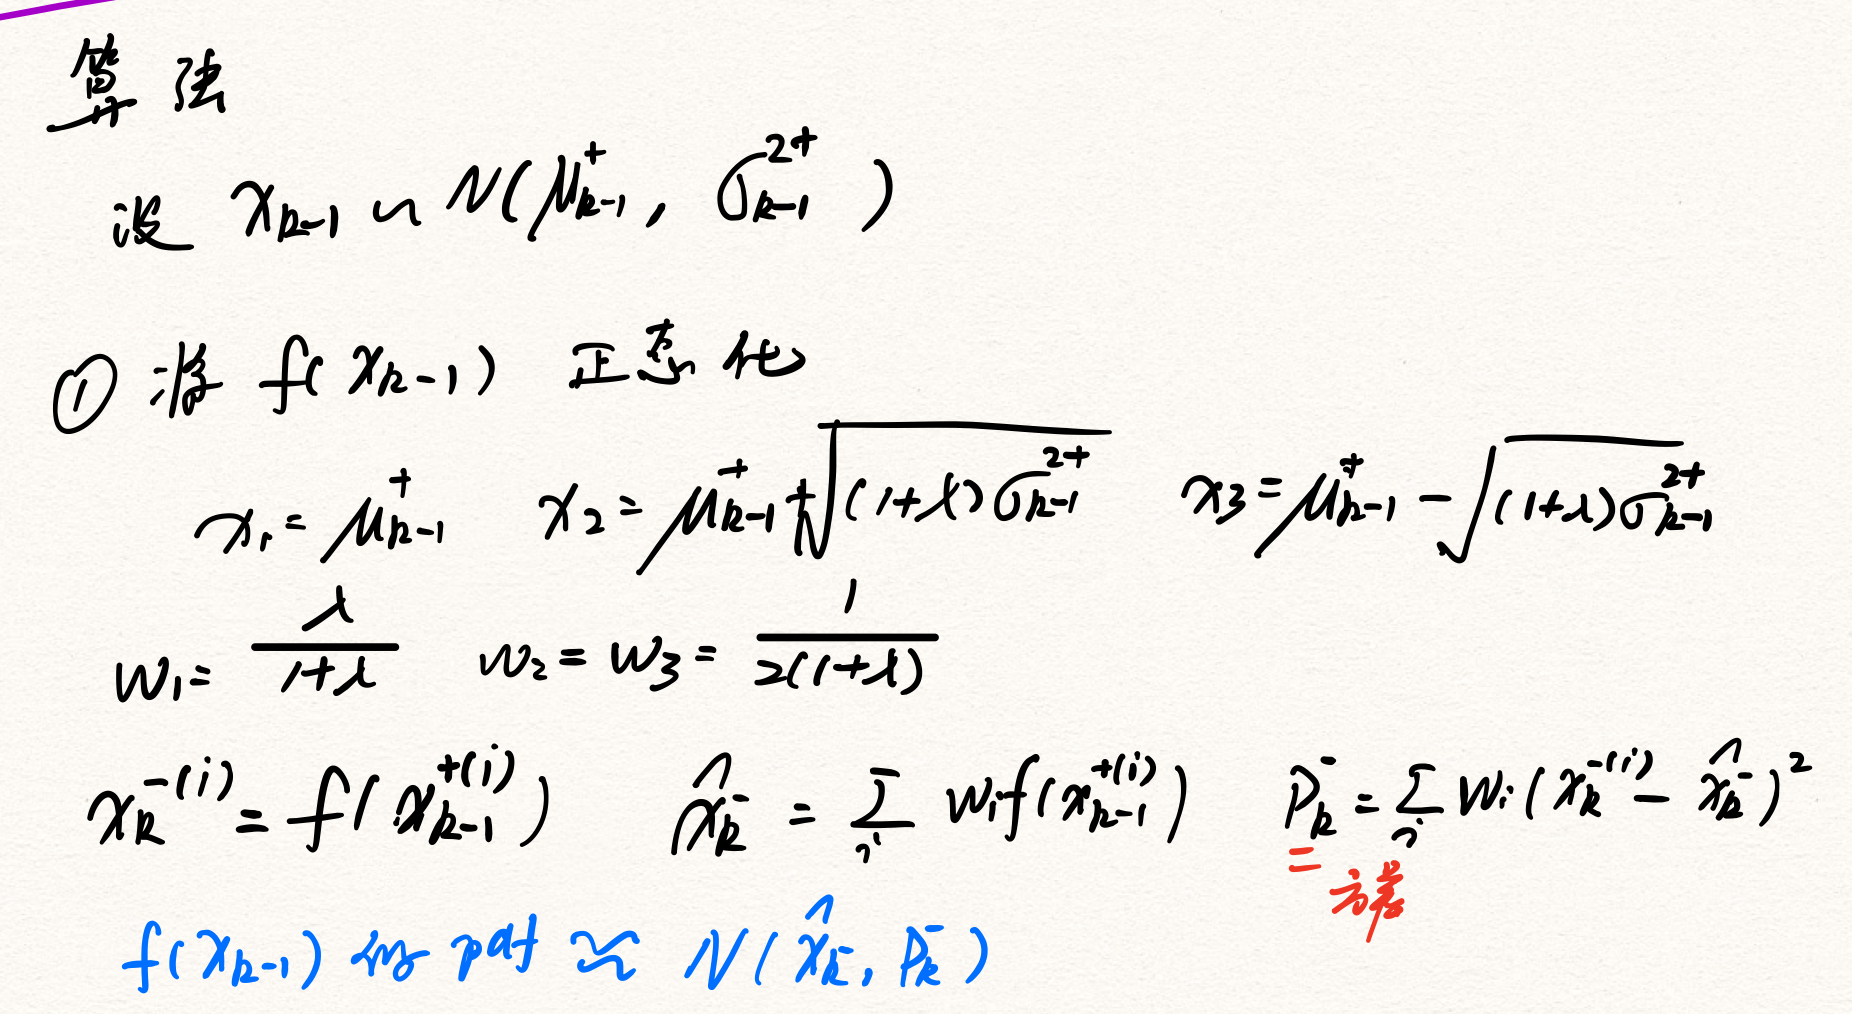 算法
设 x_{k-1} ~ N(μ_{k-1}^{+}, σ_{k-1}^{2+})
① 将 f(x_{k-1}) 正态化
x_1 = μ_{k-1}^{+} x_2 = μ_{k-1}^{+} + √((1+λ)σ_{k-1}^{2+}) x_3 = μ_{k-1}^{+} - √((1+λ)σ_{k-1}^{2+})
w_1 = λ/(1+λ) w_2 = w_3 = 1/(2(1+λ))
x_k^{-(i)} = f(x_{k-1}^{+(i)}) x̂_k^{-} = Σ_i w_i f(x_{k-1}^{+(i)}) P_k^{-} = Σ_i w_i (x_k^{-(i)} - x̂_k^{-})^2
方差
f(x_{k-1}) 的 pdf ≈ N(x̂_k^{-}, P_k^{-})